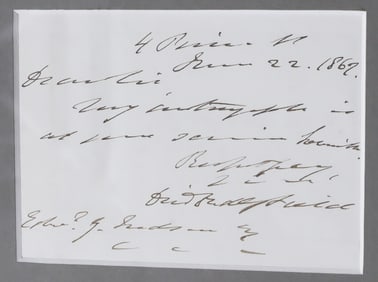 4 Pine St
June 22. 1867.
Dear Sir
My autograph is
at your service herewith.
Respy
David Dudley Field
Esq